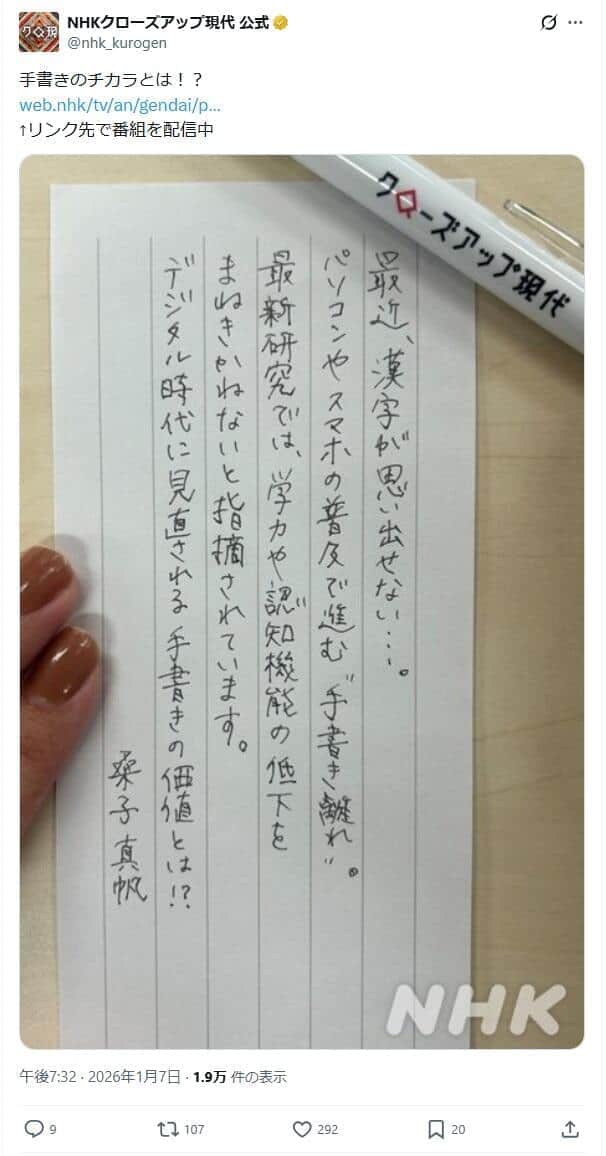 NHKクローズアップ現代 公式
@nhk_kurogen
手書きのチカラとは！？
web.nhk/tv/an/gendai/p...
↑リンク先で番組を配信中
クローズアップ現代
最近、漢字が思い出せない…。
パソコンやスマホの普及で進む“手書き離れ”。
最新研究では、学力や認知機能の低下を
まねきかねないと指摘されています。
デジタル時代に見直される手書きの価値とは!?
桑子真帆
NHK
午後7:32 · 2026年1月7日 · 1.9万 件の表示
9 107 292 20